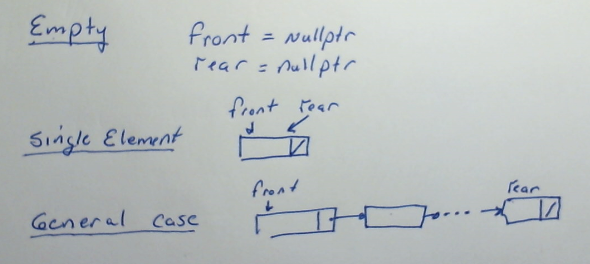 Empty front = nullptr
rear = nullptr
front rear
Single Element
front
rear
General case